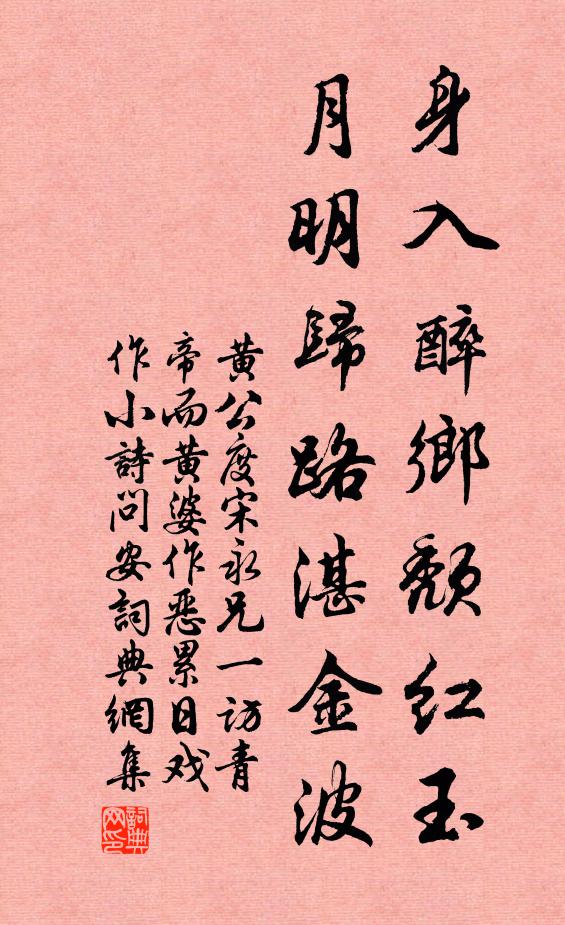 身入醉鄉頹红玉
月明歸路湛金波
黄公度宋永兄一访青
帝而黄婆作恶累日戏
作小詩问安詞典網集
詞典网印